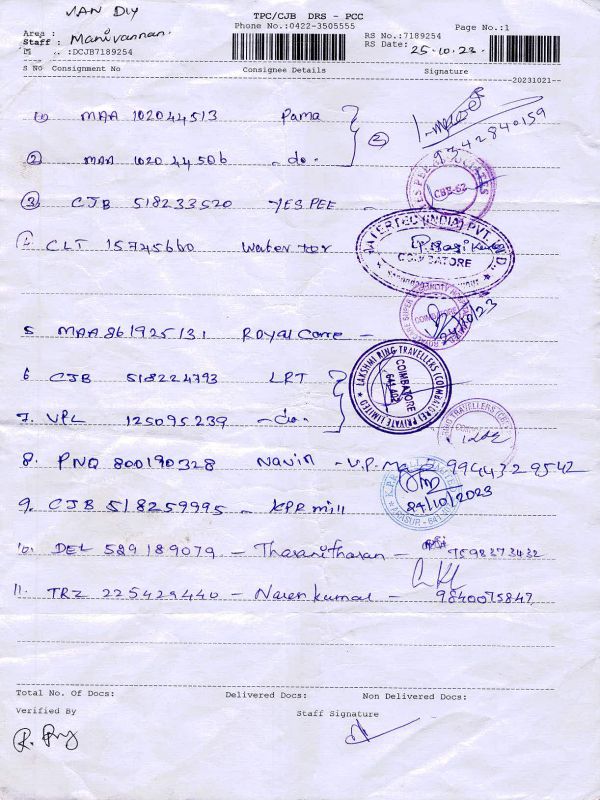 VAN DLY
TPC/CJB DRS - PCC
Phone No.:0422-3505555
Page No.:1
Area :
Staff : Manivannan.
RS No.:7189254
RS Date: 25.10.23.
:DCJB7189254
S NO Consignment No Consignee Details Signature
20231021
1 MAA 102044513 Pama
9342840159
2 MAA 102044506 - do -
2
CBE-62
3 CJB 518233520 YES PEE
WATERTEC (INDIA) PVT. LTD.
COIMBATORE
4 CLT 15745660 Water ter
24/10/23
5 MAA 861925131 Royal Care -
LAKSHMI RING TRAVELLERS (COIMBATORE) PRIVATE LIMITED
COIMBATORE
641 402
6 CJB 518224793 LRT
7. VPL 125095239 - do -
8. PNQ 800190328 Navin - V.P. 9944329542
24/10/2023
9. CJB 518259995 - KPR mill
10. DEL 589189079 - Tharanitharan - 7598373432
11. TRZ 225429440 - Naren kumar - 9840075847
Total No. Of Docs: Delivered Docs: Non Delivered Docs:
Verified By Staff Signature